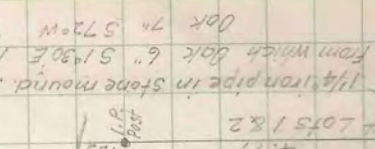 I.P.
Post
Lots 1 & 2
1¼" iron pipe in stone mound.
from which Oak 6" S 1°30 E
Oak 7" S 72° W